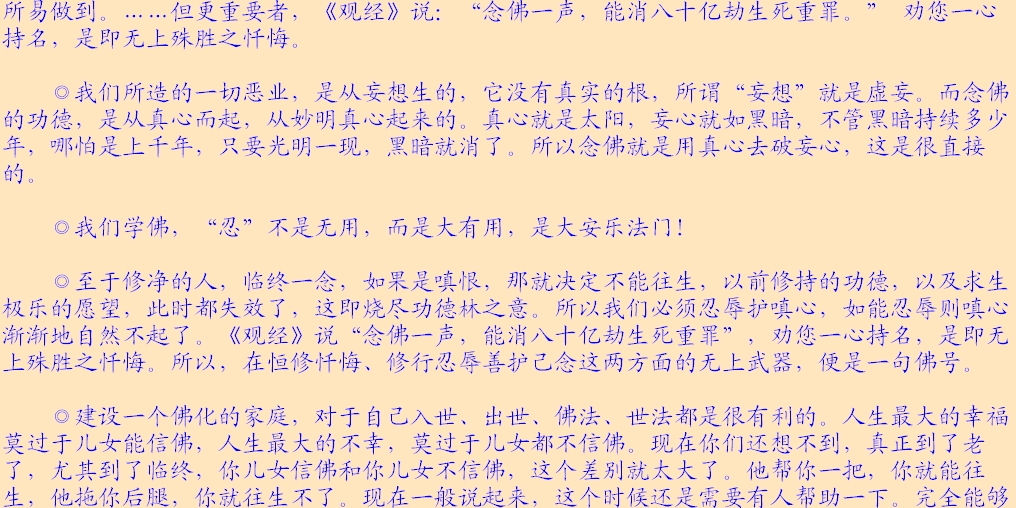 所易做到。……但更重要者，《观经》说：“念佛一声，能消八十亿劫生死重罪。” 劝您一心
持名，是即无上殊胜之忏悔。
◎我们所造的一切恶业，是从妄想生的，它没有真实的根，所谓“妄想”就是虚妄。而念佛
的功德，是从真心而起，从妙明真心起来的。真心就是太阳，妄心就如黑暗，不管黑暗持续多少
年，哪怕是上千年，只要光明一现，黑暗就消了。所以念佛就是用真心去破妄心，这是很直接
的。
◎我们学佛，“忍”不是无用，而是大有用，是大安乐法门！
◎至于修净的人，临终一念，如果是嗔恨，那就决定不能往生，以前修持的功德，以及求生
极乐的愿望，此时都失效了，这即烧尽功德林之意。所以我们必须忍辱护嗔心，如能忍辱则嗔心
渐渐地自然不起了。《观经》说“念佛一声，能消八十亿劫生死重罪”，劝您一心持名，是即无
上殊胜之忏悔。所以，在恒修忏悔、修行忍辱善护己念这两方面的无上武器，便是一句佛号。
◎建设一个佛化的家庭，对于自己入世、出世、佛法、世法都是很有利的。人生最大的幸福
莫过于儿女能信佛，人生最大的不幸，莫过于儿女都不信佛。现在你们还想不到，真正到了老
了，尤其到了临终，你儿女信佛和你儿女不信佛，这个差别就太大了。他帮你一把，你就能往
生，他拖你后腿，你就往生不了。现在一般说起来，这个时候还是需要有人帮助一下。完全能够